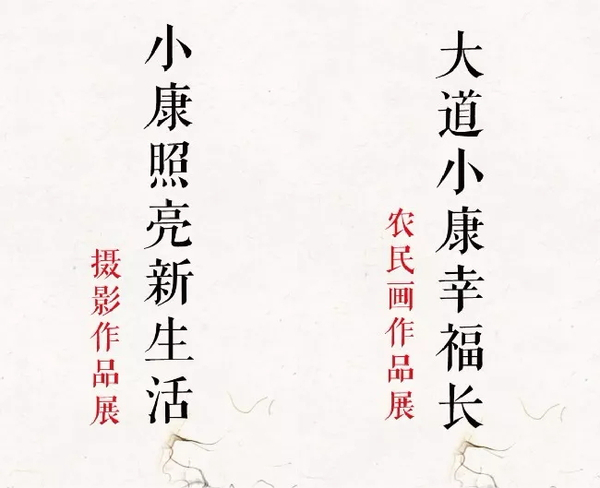 大道小康幸福长
农民画作品展
小康照亮新生活
摄影作品展